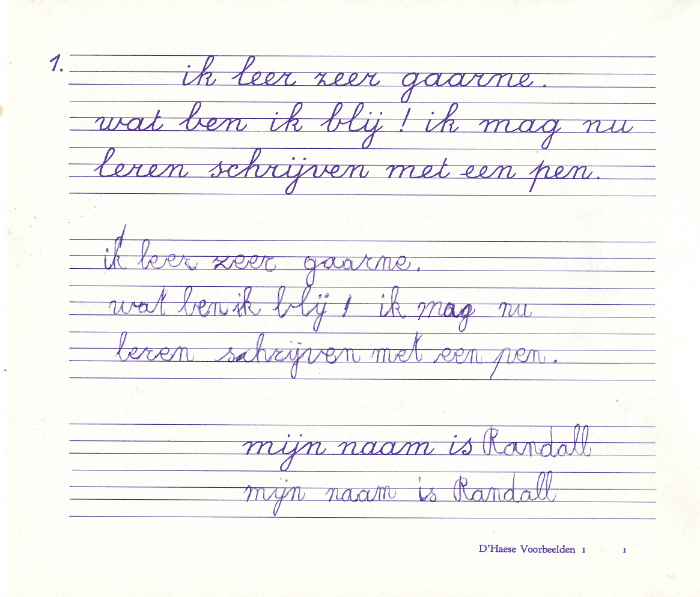 1.
ik leer zeer gaarne.
wat ben ik blij! ik mag nu
leren schrijven met een pen.
ik leer zeer gaarne.
wat ben ik blij! ik mag nu
leren schrijven met een pen.
mijn naam is Randall
mijn naam is Randall
D'Haese Voorbeelden 1 1